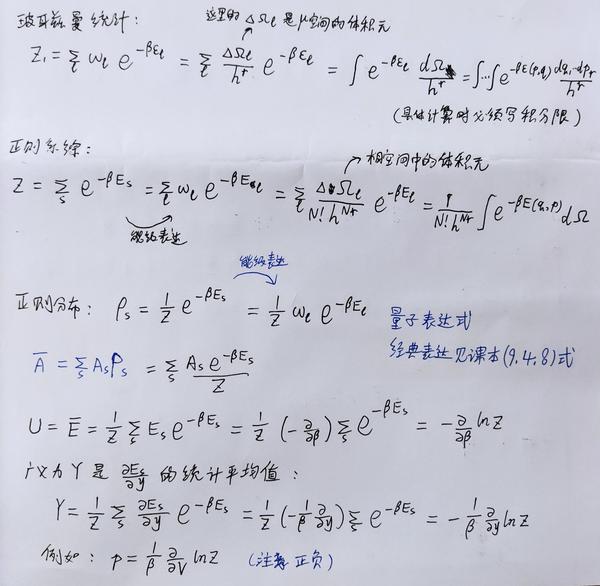 玻耳兹曼统计：
这里的 ΔΩₗ 是μ空间的体积元
Z₁ = Σₗ ωₗ e^{-βεₗ} = Σₗ ΔΩₗ/hʳ e^{-βεₗ} = ∫ e^{-βεₗ} dΩ/hʳ = ∫…∫ e^{-βε(p,q)} dq₁…dpᵣ/hʳ
（具体计算时必须写积分限）
正则系综：
相空间中的体积元
Z = Σₛ e^{-βEₛ} = Σₗ ωₗ e^{-βEₗ} = Σₗ ΔΩₗ/(N! h^{Nr}) e^{-βEₗ} = 1/(N! h^{Nr}) ∫ e^{-βE(q,p)} dΩ
能级表达
能级表达
正则分布： ρₛ = 1/Z e^{-βEₛ} = 1/Z ωₗ e^{-βEₗ}
量子表达式
经典表达见课本(9,4,8)式
Ā = Σₛ Aₛρₛ = Σₛ Aₛ e^{-βEₛ}/Z
U = Ē = 1/Z Σₛ Eₛ e^{-βEₛ} = 1/Z (-∂/∂β) Σₛ e^{-βEₛ} = -∂/∂β lnZ
广义力 Y 是 ∂Eₛ/∂y 的统计平均值：
Y = 1/Z Σₛ ∂Eₛ/∂y e^{-βEₛ} = 1/Z (-1/β ∂/∂y) Σₛ e^{-βEₛ} = -1/β ∂/∂y lnZ
例如： p = 1/β ∂/∂V lnZ （注意正负）